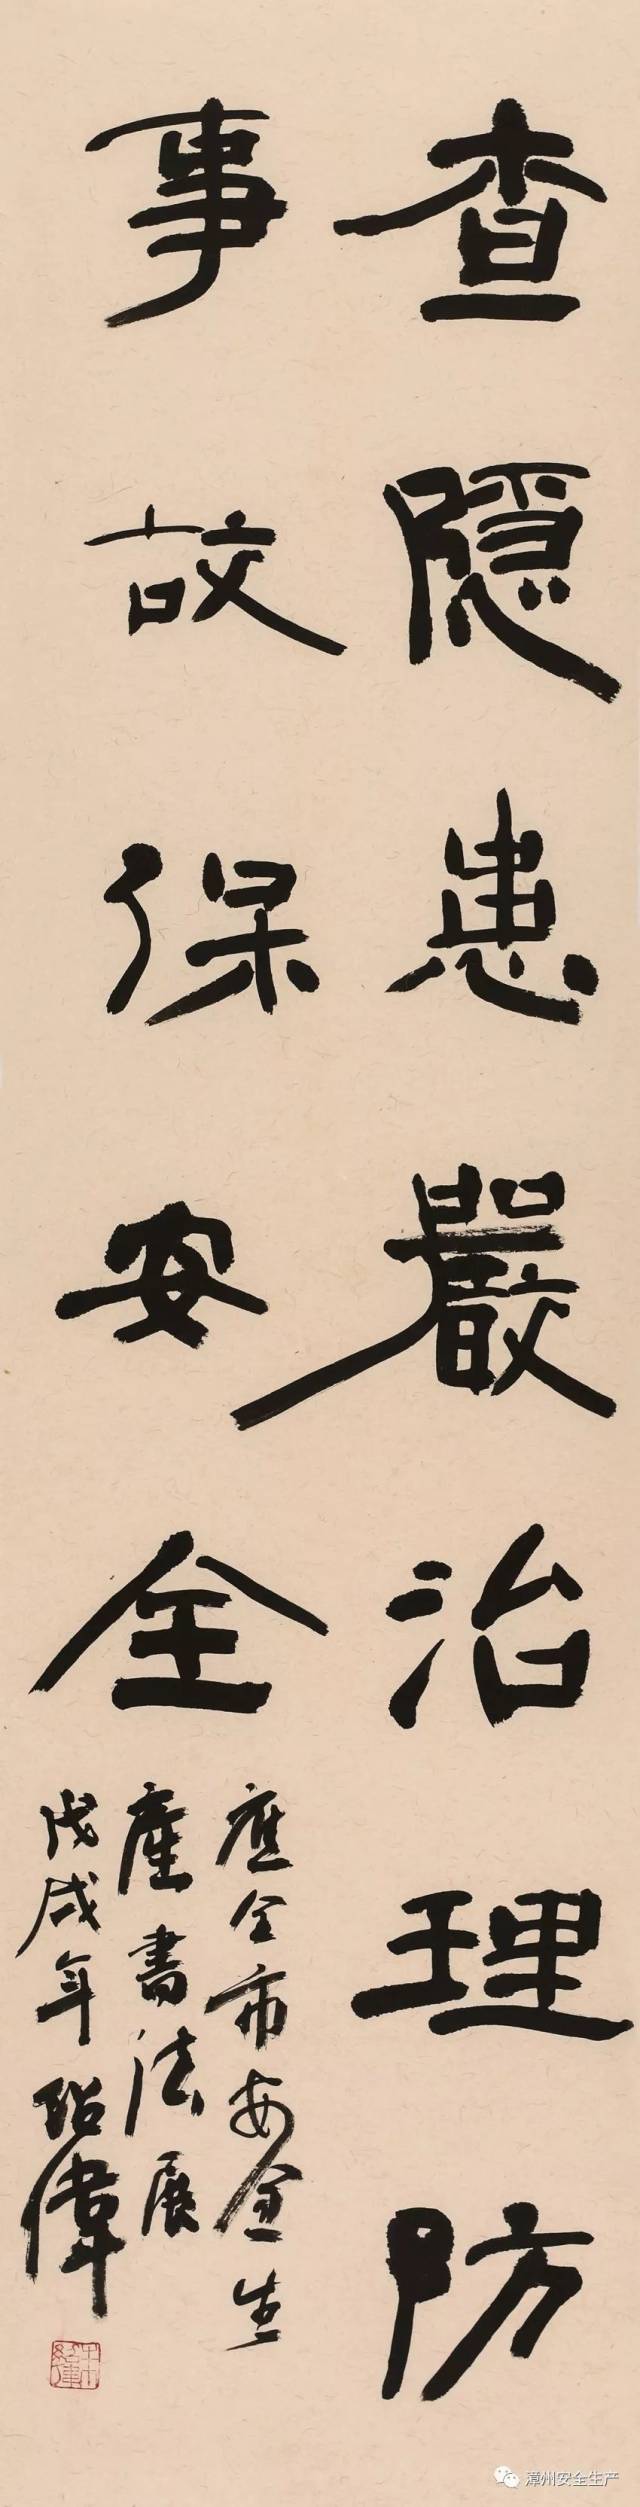 查隐患嚴治理防
事故保安全
應全市安全生
產書法展
戊戌年紹偉
漳州安全生产